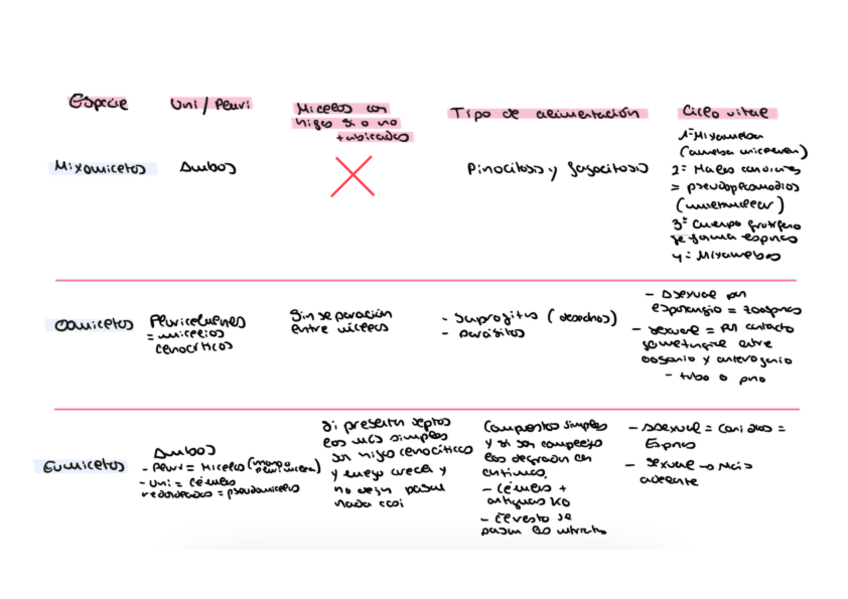 Especie
Uni / Pluri
Micelios con
hifas si o no
tabicadas
Tipo de alimentación
Ciclo vital
Mixomicetos
Ambos
Pinocitosis y fagocitosis
1º Mixameba
(ameba unicelular)
2º Malas condiciones
= pseudoplasmodios
(multinuclear)
3º Cuerpo fructífero
se forma esporas
4º Mixamebas
Oomicetos
Pluricelulares
= micelios
cenocíticos
Sin separación
entre núcleos
- Saprofitos (desechos)
- Parásitos
- Asexual por
esporangio = zoosporas
- Sexual = por contacto
gametangial entre
oogonio y anterogonio
- tubo o poro
Eumicetos
Ambos
- Pluri = Micelios (mono o
plurinuclear)
- Uni = Células
redondeadas = pseudomicelios
Si presentan septos
los más simples
son hifas cenocíticas
y luego crecen y
no dejan pasar
nada casi
Compuestos simples
y si son complejos
los degradan con
enzimas.
- Células +
antiguas KO
- El resto se
pasan los nutrientes
- Asexual = Conidios =
Esporas
- Sexual → Más
adelante